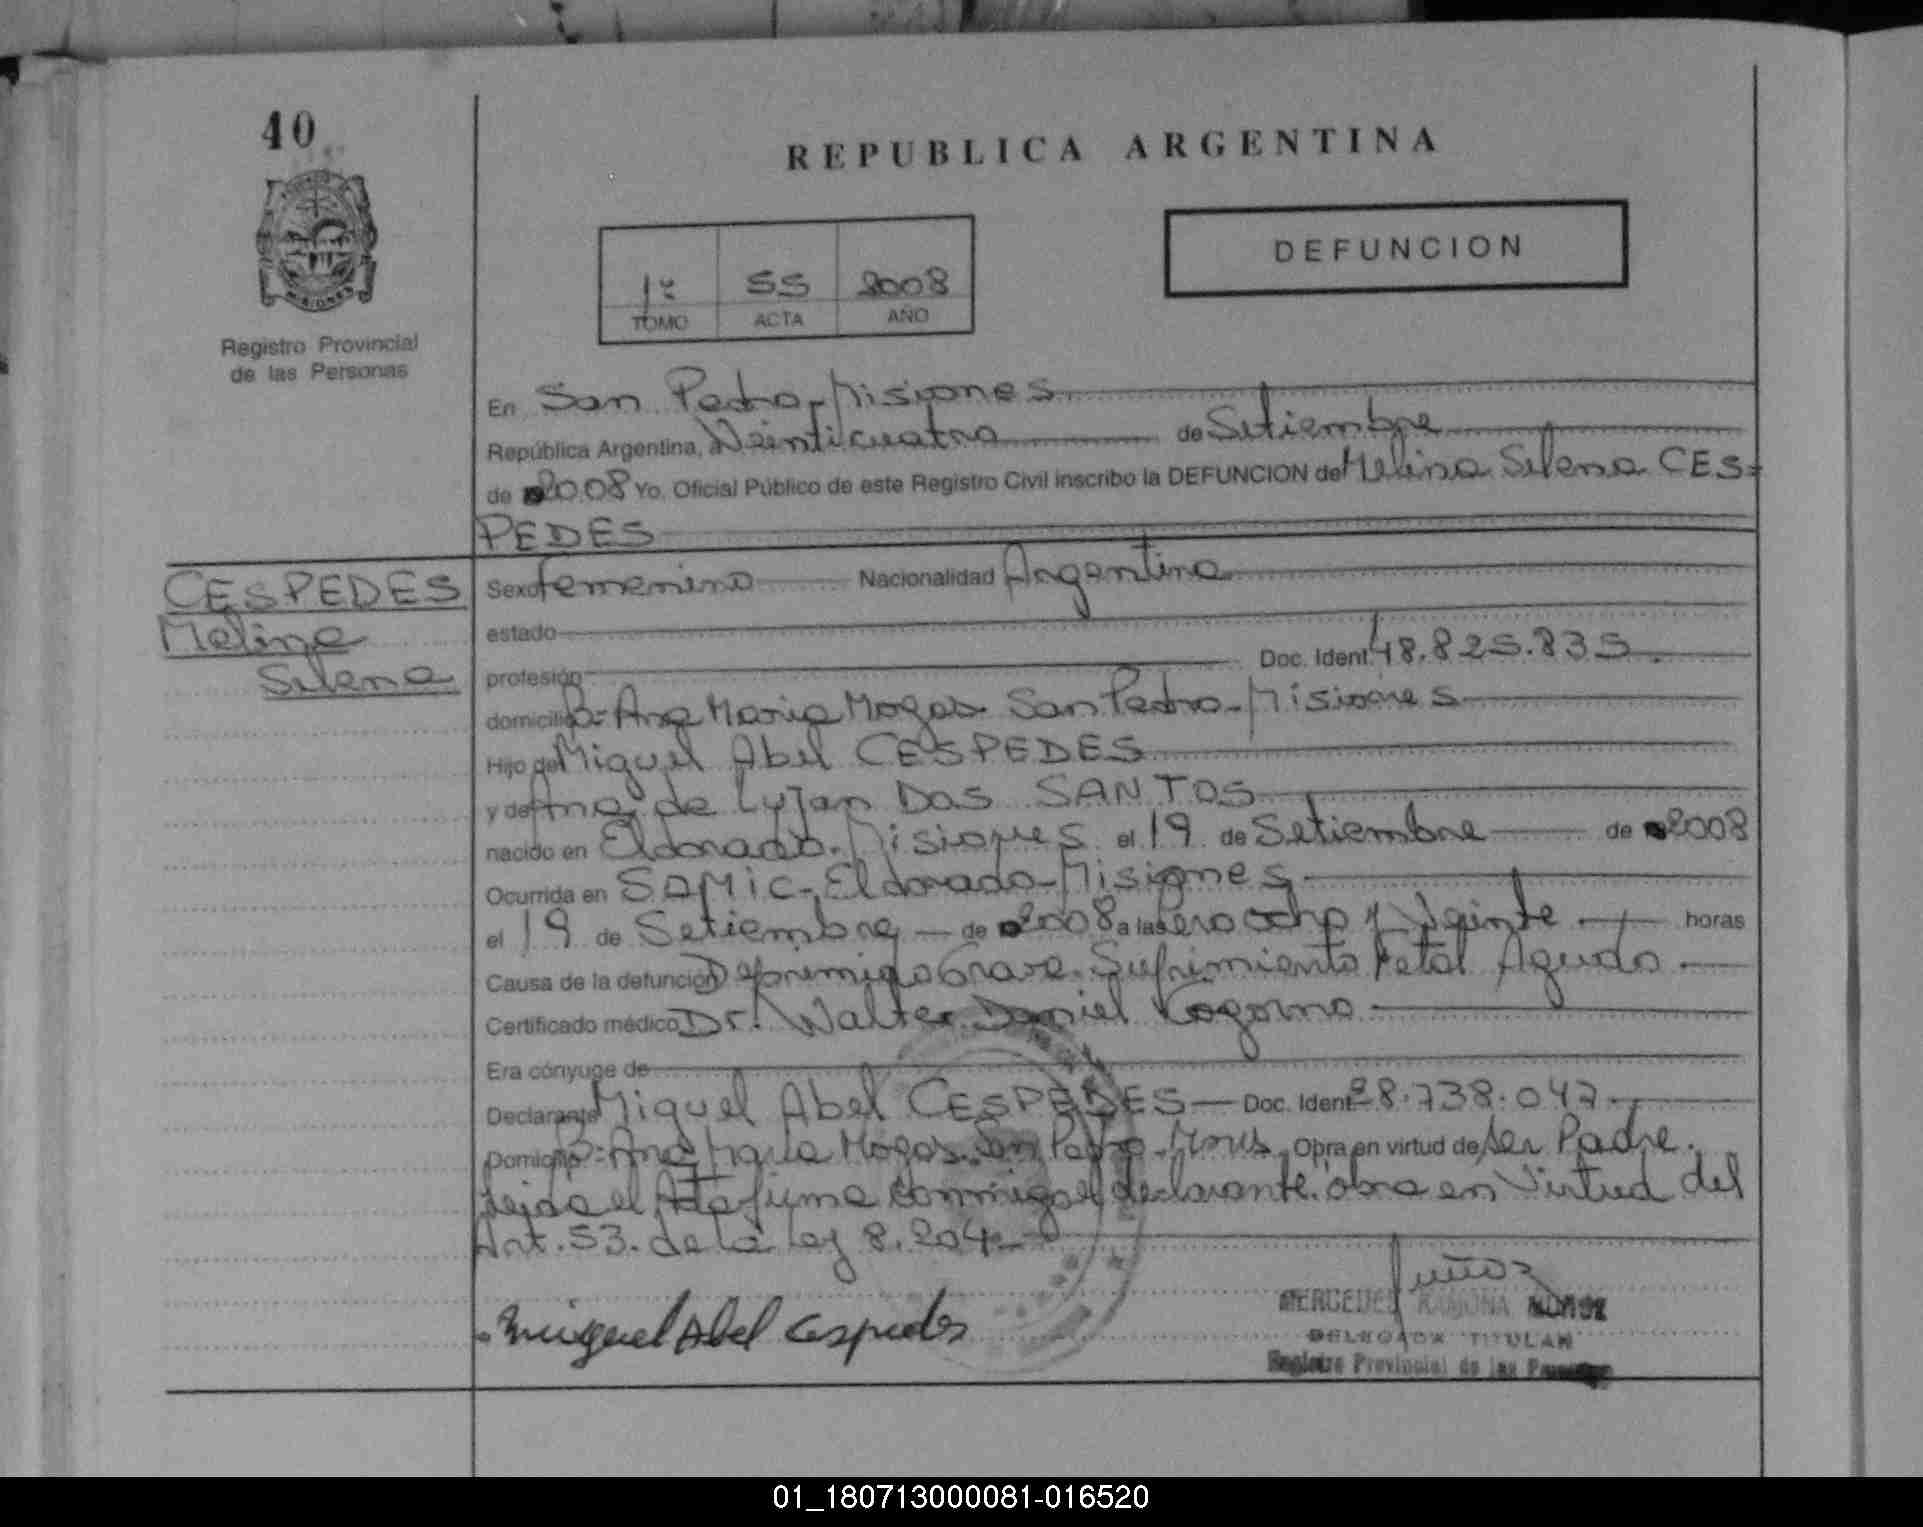 40
REPUBLICA ARGENTINA
DEFUNCION
1º 55 2008
TOMO ACTA AÑO
Registro Provincial
de las Personas
En San Pedro-Misiones
República Argentina, a Veinticuatro de Setiembre
de 2008 Yo, Oficial Público de este Registro Civil inscribo la DEFUNCION de Melina Selena CES-
PEDES
CESPEDES
Melina
Selena
Sexo femenino Nacionalidad Argentina
estado
profesión Doc. Ident. 48.825.835.
domicilio Bº Ana Maria Mogas San Pedro-Misiones
Hijo de Miguel Abel CESPEDES
y de Ana de Lujan DOS SANTOS
nacido en Eldorado-Misiones el 19 de Setiembre de 2008
Ocurrida en SAMIC-Eldorado-Misiones
el 19 de Setiembre de 2008 a las cero ocho y Veinte horas
Causa de la defunción Grave. Sufrimiento fetal Agudo
Certificado médico Dr. Walter Daniel Cogorno
Era cónyuge de
Declarante Miguel Abel CESPEDES Doc. Ident. 28.738.047
Domicilio Bº Ana Maria Mogas San Pedro-Mnes Obra en virtud de ser Padre.
el Acta firma conmigo el declarante. obra en Virtud del
Art. 53. de la ley 8.204
Miguel Abel Cespedes
MERCEDES RAMONA MUÑOZ
DELEGADA TITULAR
Registro Provincial de las Personas
01_180713000081-016520